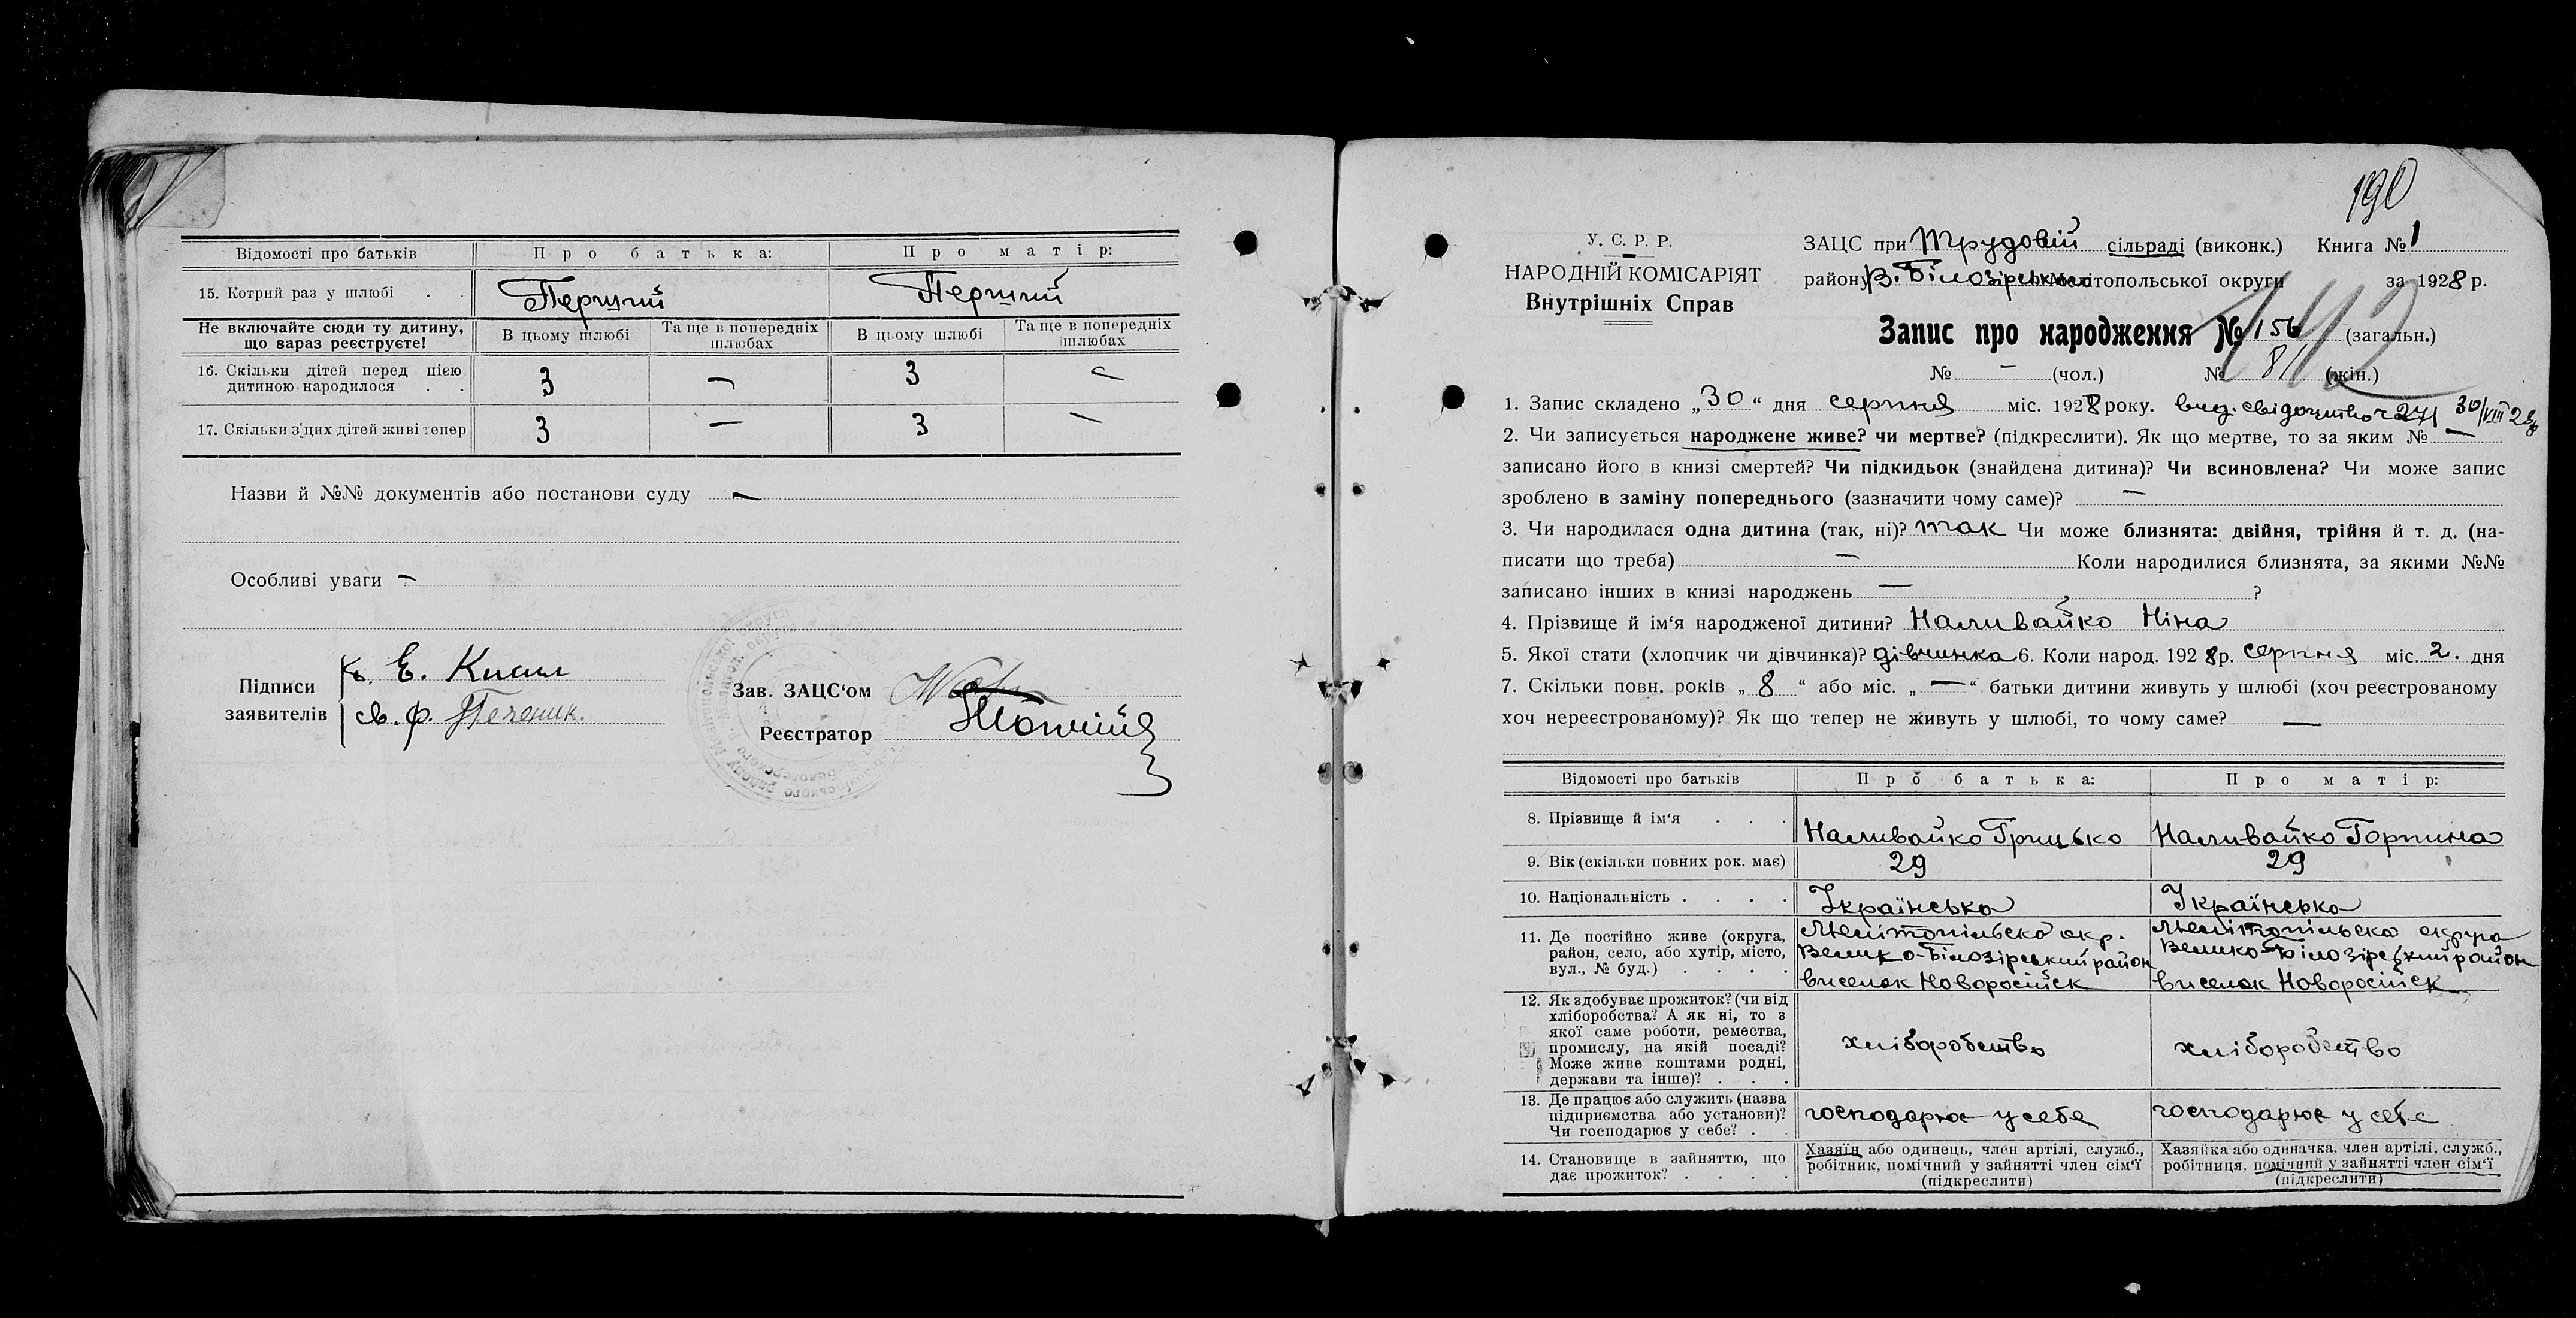 Відомості про батьків Про батька: Про матір:
15. Котрий раз у шлюбі . . Перший Перший
Не включайте сюди ту дитину, що вараз реєструєте! В цьому шлюбі Та ще в попередніх шлюбах В цьому шлюбі Та ще в попередніх шлюбах
16. Скільки дітей перед цією дитиною народилося . . 3 — 3 —
17. Скільки з цих дітей живі тепер 3 — 3 —
Назви й №№ документів або постанови суду —
Особливі уваги —
Підписи заявителів
Е. Кисіл
св. Ф. Печеник.
Зав. ЗАЦС‘ом
Реєстратор
190
У. С. Р. Р.
НАРОДНІЙ КОМІСАРІЯТ
Внутрішніх Справ
ЗАЦС при Трудовій сільраді (виконк.) Книга № 1
району В. Білозірського Мелітопольської округи за 1928 р.
142
Запис про народження № 156 (загальн.)
№ — (чол.) № 81 (жін.)
1. Запис складено „30“ дня серпня міс. 1928 року. вид. свідоцтво ч 271 30/VIII 28
2. Чи записується народжене живе? чи мертве? (підкреслити). Як що мертве, то за яким № —
записано його в книзі смертей? Чи підкидьок (знайдена дитина)? Чи всиновлена? Чи може запис
зроблено в заміну попереднього (зазначити чому саме)? —
3. Чи народилася одна дитина (так, ні)? так Чи може близнята: двійня, трійня й т. д. (на-
писати що треба) — Коли народилися близнята, за якими №№
записано інших в книзі народжень — ?
4. Прізвище й ім‘я народженої дитини? Наливайко Ніна
5. Якої стати (хлопчик чи дівчинка)? дівчинка 6. Коли народ. 1928 р. серпня міс. 2. дня
7. Скільки повн. років „ 8 “ або міс. „ — “ батьки дитини живуть у шлюбі (хоч реєстрованому
хоч нереєстрованому)? Як що тепер не живуть у шлюбі, то чому саме? —
Відомості про батьків Про батька: Про матір:
8. Прізвище й ім‘я . . . Наливайко Грицько Наливайко Горпина
9. Вік (скільки повних рок. має) 29 29
10. Національність . . . . Українська Українська
11. Де постійно живе (округа, район, село, або хутір, місто, вул., № буд.) . . . .
Мелітопільска окр. Велико-Білозірський район виселок Новоросійск
Мелітопільска округа Велико-Білозірський район виселок Новоросійск
12. Як здобуває прожиток? (чи від хліборобства? А як ні, то з якої саме роботи, ремества, промислу, на якій посаді? Може живе коштами родні, держави та інше)? . . .
хліборобство хліборобство
13. Де працює або служить (назва підприємства або установи)? Чи господарює у себе? .
господарює у себе господарює у себе
14. Становище в зайняттю, що дає прожиток? . . . .
Хазяїн або одинець, член артілі, служб., робітник, помічний у зайнятті член сім‘ї (підкреслити)
Хазяйка або одиначка, член артілі, служб., робітниця, помічний у зайнятті член сім‘ї (підкреслити)